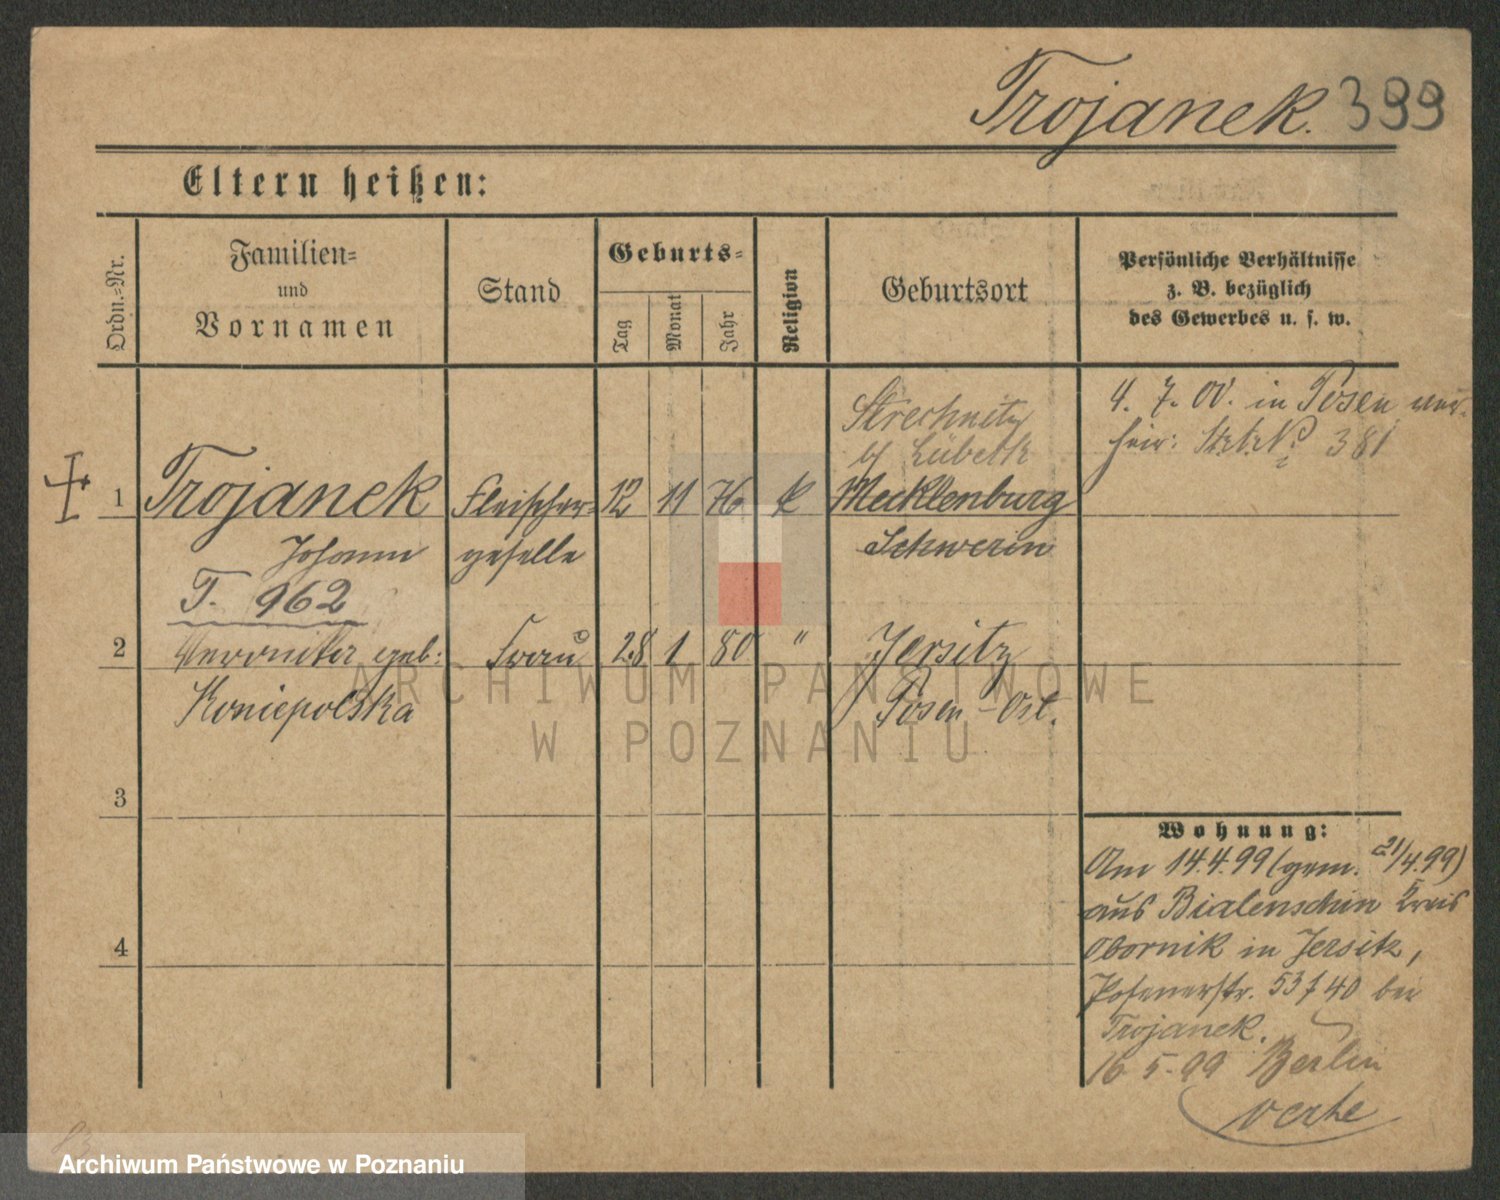 Trojanek. 399
Eltern heißen:
Ordn.-Nr.
Familien-
und
Vornamen
Stand
Geburts-
Tag
Monat
Jahr
Religion
Geburtsort
Persönliche Verhältnisse
z. B. bezüglich
des Gewerbes u. s. w.
4. 7. 00. in Posen ver-
heir: 381
b/ Lübeck
1 Trojanek Fleischer- 12 11 76 k Mecklenburg
Johann geselle Schwerin
T. 962
2 Veronika geb: Frau 28 1 80 " Jersitz
Koniepolska Posen-Ost.
3
Wohnung:
Am 14.4.99 (gem. 21/4.99)
aus Bialenschin Kreis
4 Obornik in Jersitz,
Posenerstr. 53 / 40 bei
Trojanek.
16. 5. 99 Berlin
ARCHIWUM PAŃSTWOWE
W POZNANIU
Archiwum Państwowe w Poznaniu